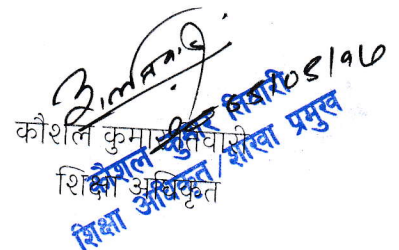 कौशल कुमार तिवारी
शिक्षा अधिकृत
कौशल कुमार तिवारी
शिक्षा अधिकृत/शाखा प्रमुख